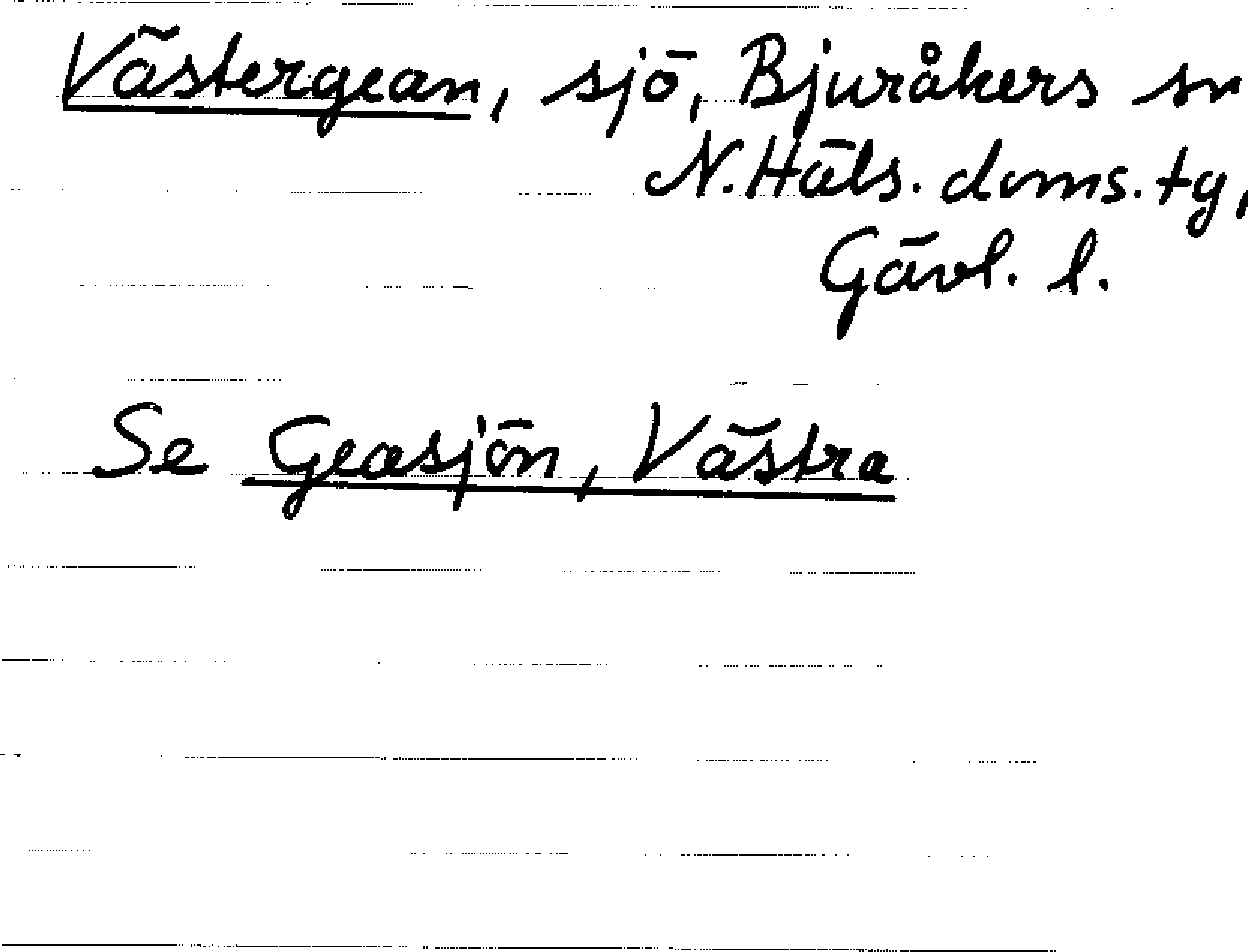 Västergean, sjö, Bjuråkers sn
N. Häls. doms. tg,
Gävl. l.
Se Geasjön, Västra